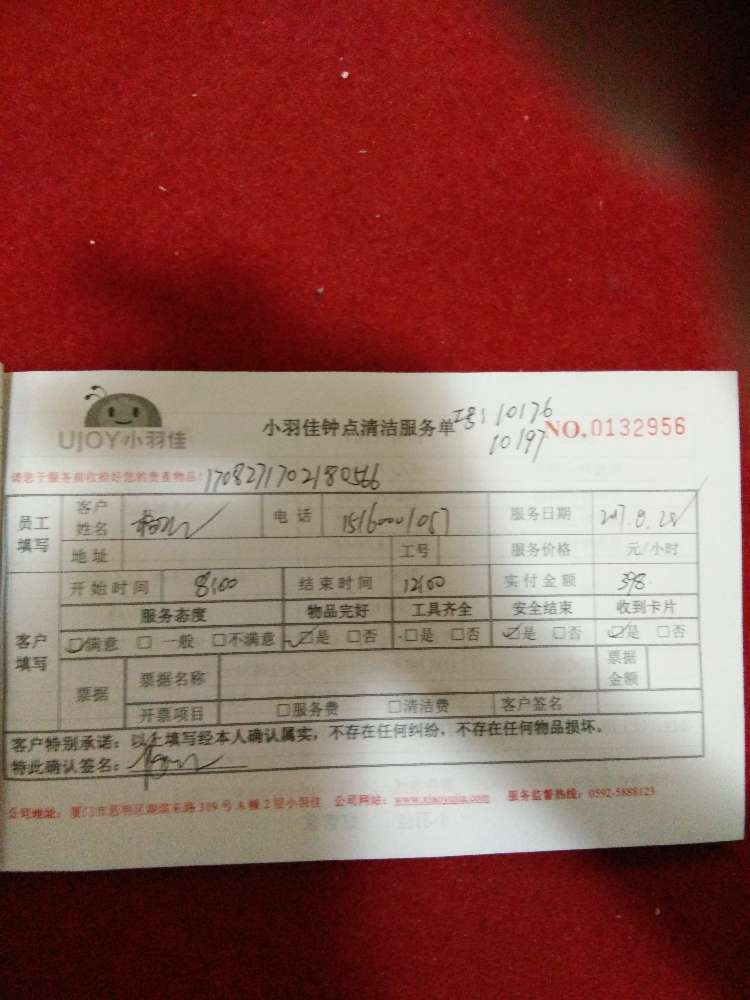 UJOY小羽佳
小羽佳钟点清洁服务单 工号:10176 NO.0132956
10197
请您于服务前收拾好您的贵重物品! 1708271702180566
员工填写 客户姓名 电话 15160001057 服务日期 2017.8.28
地址 工号 服务价格 元/小时
客户填写 开始时间 8:00 结束时间 12:00 实付金额 398
服务态度 物品完好 工具齐全 安全结束 收到卡片
☑满意 □一般 □不满意 ☑是 □否 □是 □否 ☑是 □否 ☑是 □否
票据 票据名称 票据金额
开票项目 □服务费 □清洁费 客户签名
客户特别承诺:以上填写经本人确认属实,不存在任何纠纷,不存在任何物品损坏。
特此确认签名:
公司地址: 东路309号A幢2层小羽佳 公司网站:www.xiaoyujia.com 服务监督热线:0592-5888123